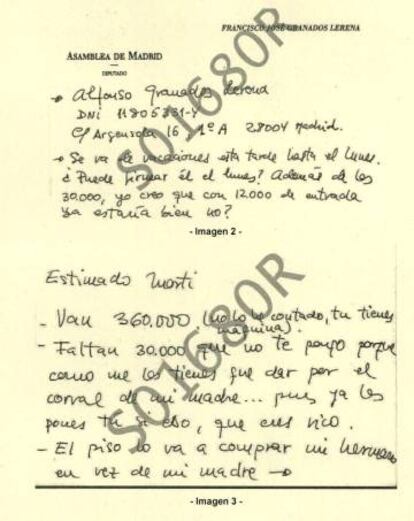 FRANCISCO JOSÉ GRANADOS LERENA
ASAMBLEA DE MADRID
DIPUTADO
Alfonso Granados Lerena
DNI 11805331-Y
C/ Argensola 16, 1º A 28004 Madrid.
- Se va de vacaciones esta tarde hasta el lunes.
¿Puede firmar él el lunes? Además de los
30.000, yo creo que con 12.000 de entrada
ya estaría bien no?
- Imagen 2 -
Estimado Marti
- Van 360.000 (no lo he contado, tu tienes
maquina).
- Faltan 30.000 que no te pago porque
como me los tienes que dar por el
corral de mi madre... pues ya los
pones tu si eso, que eres rico.
- El piso lo va a comprar mi hermano
en vez de mi madre →
- Imagen 3 -
SO1680R
SO1680R